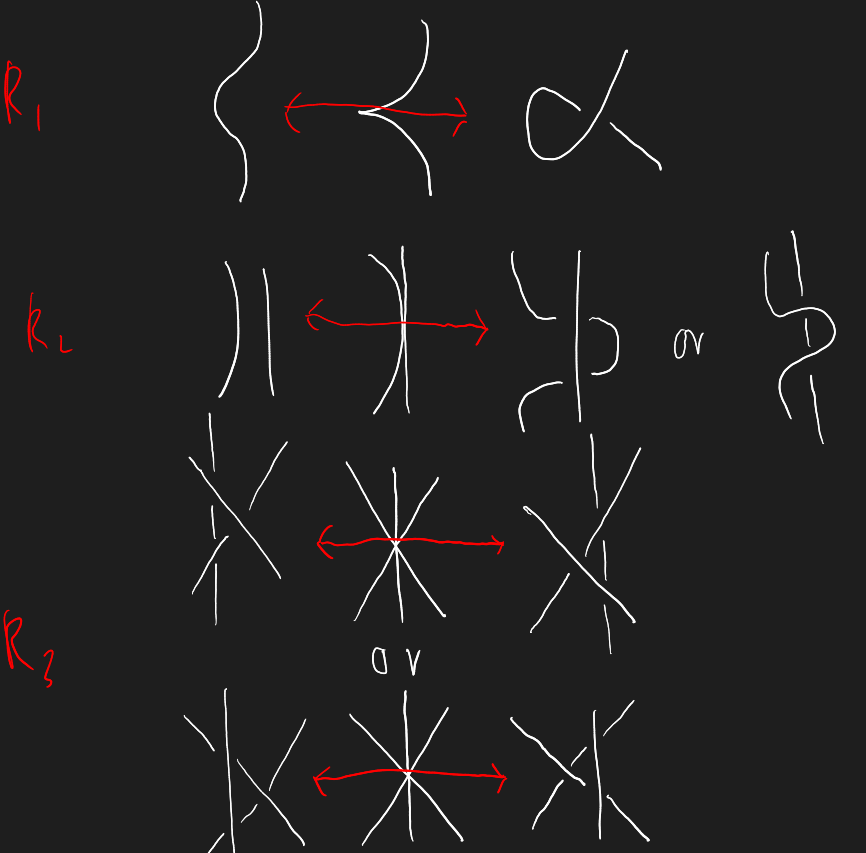 R₁
R₂
or
R₃
or